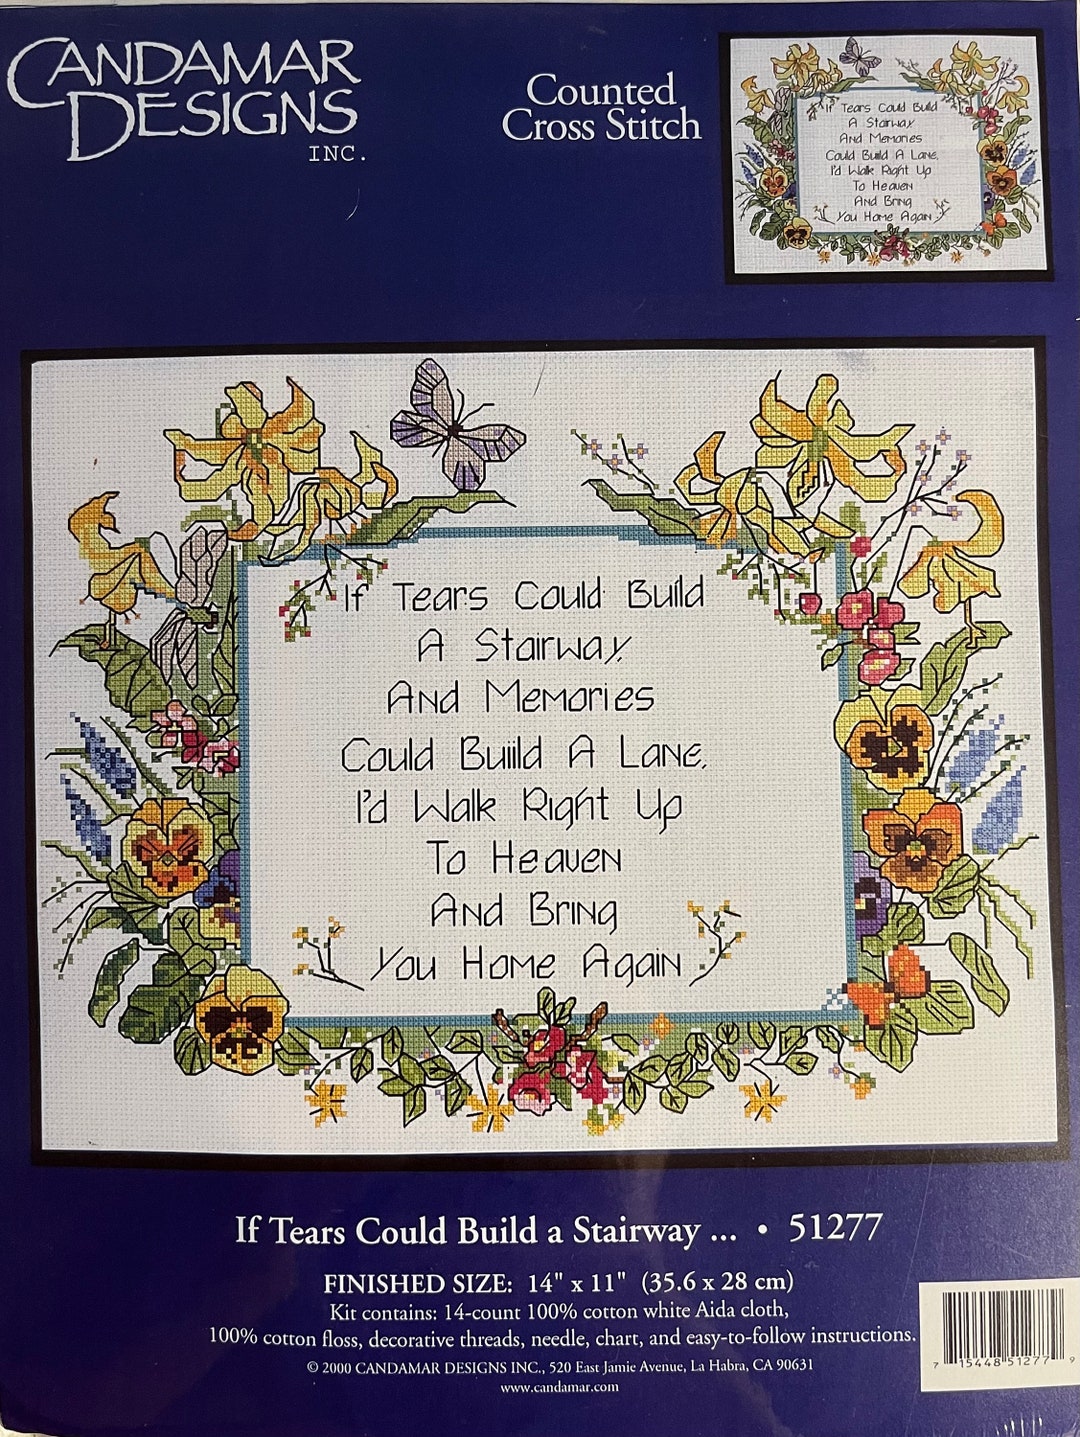 CANDAMAR
DESIGNS
INC.
Counted
Cross Stitch
If Tears Could Build
A Stairway
And Memories
Could Build A Lane,
I'd Walk Right Up
To Heaven
And Bring
You Home Again
If Tears Could Build
A Stairway,
And Memories
Could Buiild A Lane,
I'd Walk Right Up
To Heaven
And Bring
You Home Again
If Tears Could Build a Stairway ... • 51277
FINISHED SIZE: 14" x 11" (35.6 x 28 cm)
Kit contains: 14-count 100% cotton white Aida cloth,
100% cotton floss, decorative threads, needle, chart, and easy-to-follow instructions.
© 2000 CANDAMAR DESIGNS INC., 520 East Jamie Avenue, La Habra, CA 90631
www.candamar.com
7 15448 51277 9